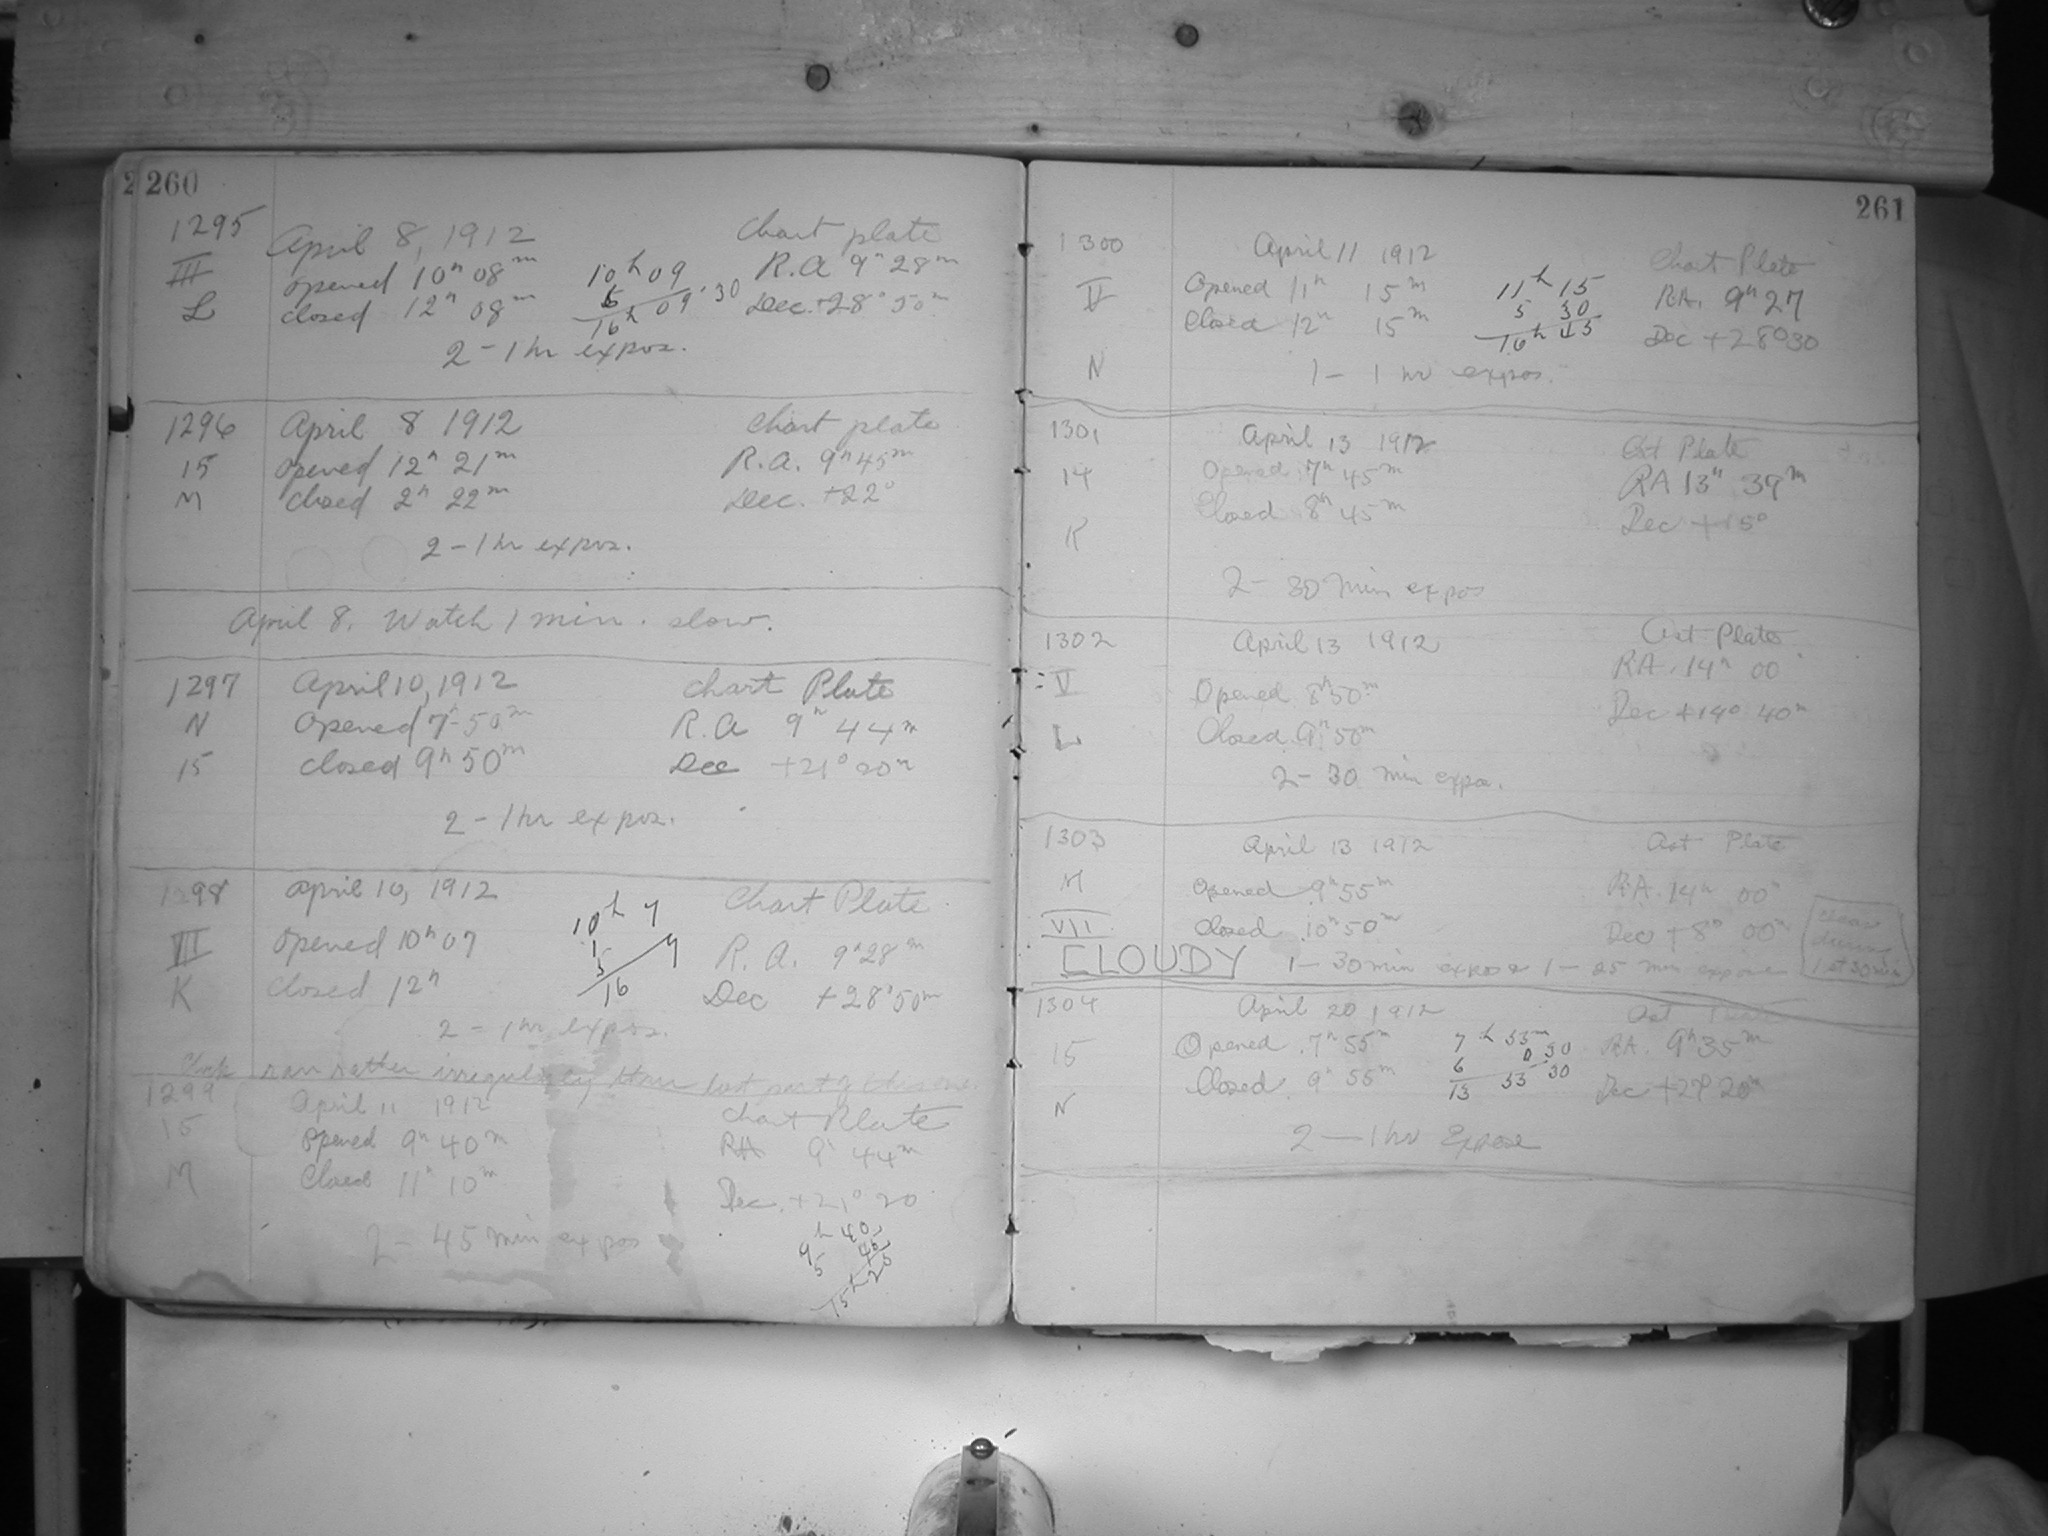 260
1295 April 8, 1912 Chart plate
III opened 10h 08m 10h 09 R.A 9h 28m
L closed 12h 08m 6 09.30 Dec. +28° 50m
16h 09
2 - 1 hr expos.
1296 April 8 1912 Chart plate
15 opened 12h 21m R.A. 9h 45m
M closed 2h 22m Dec. +22°
2 - 1 hr expos.
April 8. Watch 1 min. slow.
1297 April 10, 1912 Chart Plate
N Opened 7h 50m R.A 9h 44m
15 closed 9h 50m Dec +21° 20m
2 - 1 hr expos.
1298 April 10, 1912 Chart Plate
10h 7
VII opened 10h 07 R.A. 9h 28m
K closed 12h Dec +28° 50m
16
2 - 1 hr expos.
ran rather irregularly last part of this one
1299 April 11 1912 Chart Plate
15 opened 9h 40m RA 9h 44m
M Closed 11h 10m Dec. +21° 20
2 - 45 min expos
9h 40
5 45
15h 20
261
1300 April 11 1912 Chart Plate
V Opened 11h 15m 11h 15 RA. 9h 27
Closed 12h 15m 5 30 Dec +28° 30
16h 45
N 1 - 1 hr expos.
1301 April 13 1912 Ast Plate
14 Opened 7h 45m RA 13h 39m
Closed 8h 45m Dec +15°
K
2 - 30 min expos
1302 April 13 1912 Ast Plate
V Opened 8h 50m RA. 14h 00
L Closed 9h 50m Dec +14° 40m
2 - 30 min expos.
1303 April 13 1912 Ast Plate
M Opened 9h 55m RA. 14h 00m
VII Closed 10h 50m Dec +8° 00m
clear during 1st 30 min
CLOUDY 1 - 30 min expos & 1 - 25 min expose
1304 April 20, 1912 Ast
15 Opened 7h 55m 7h 53m RA. 9h 35m
Closed 9h 55m 6 0 30 Dec +29° 20m
13 53 30
N
2 - 1 hr Expose